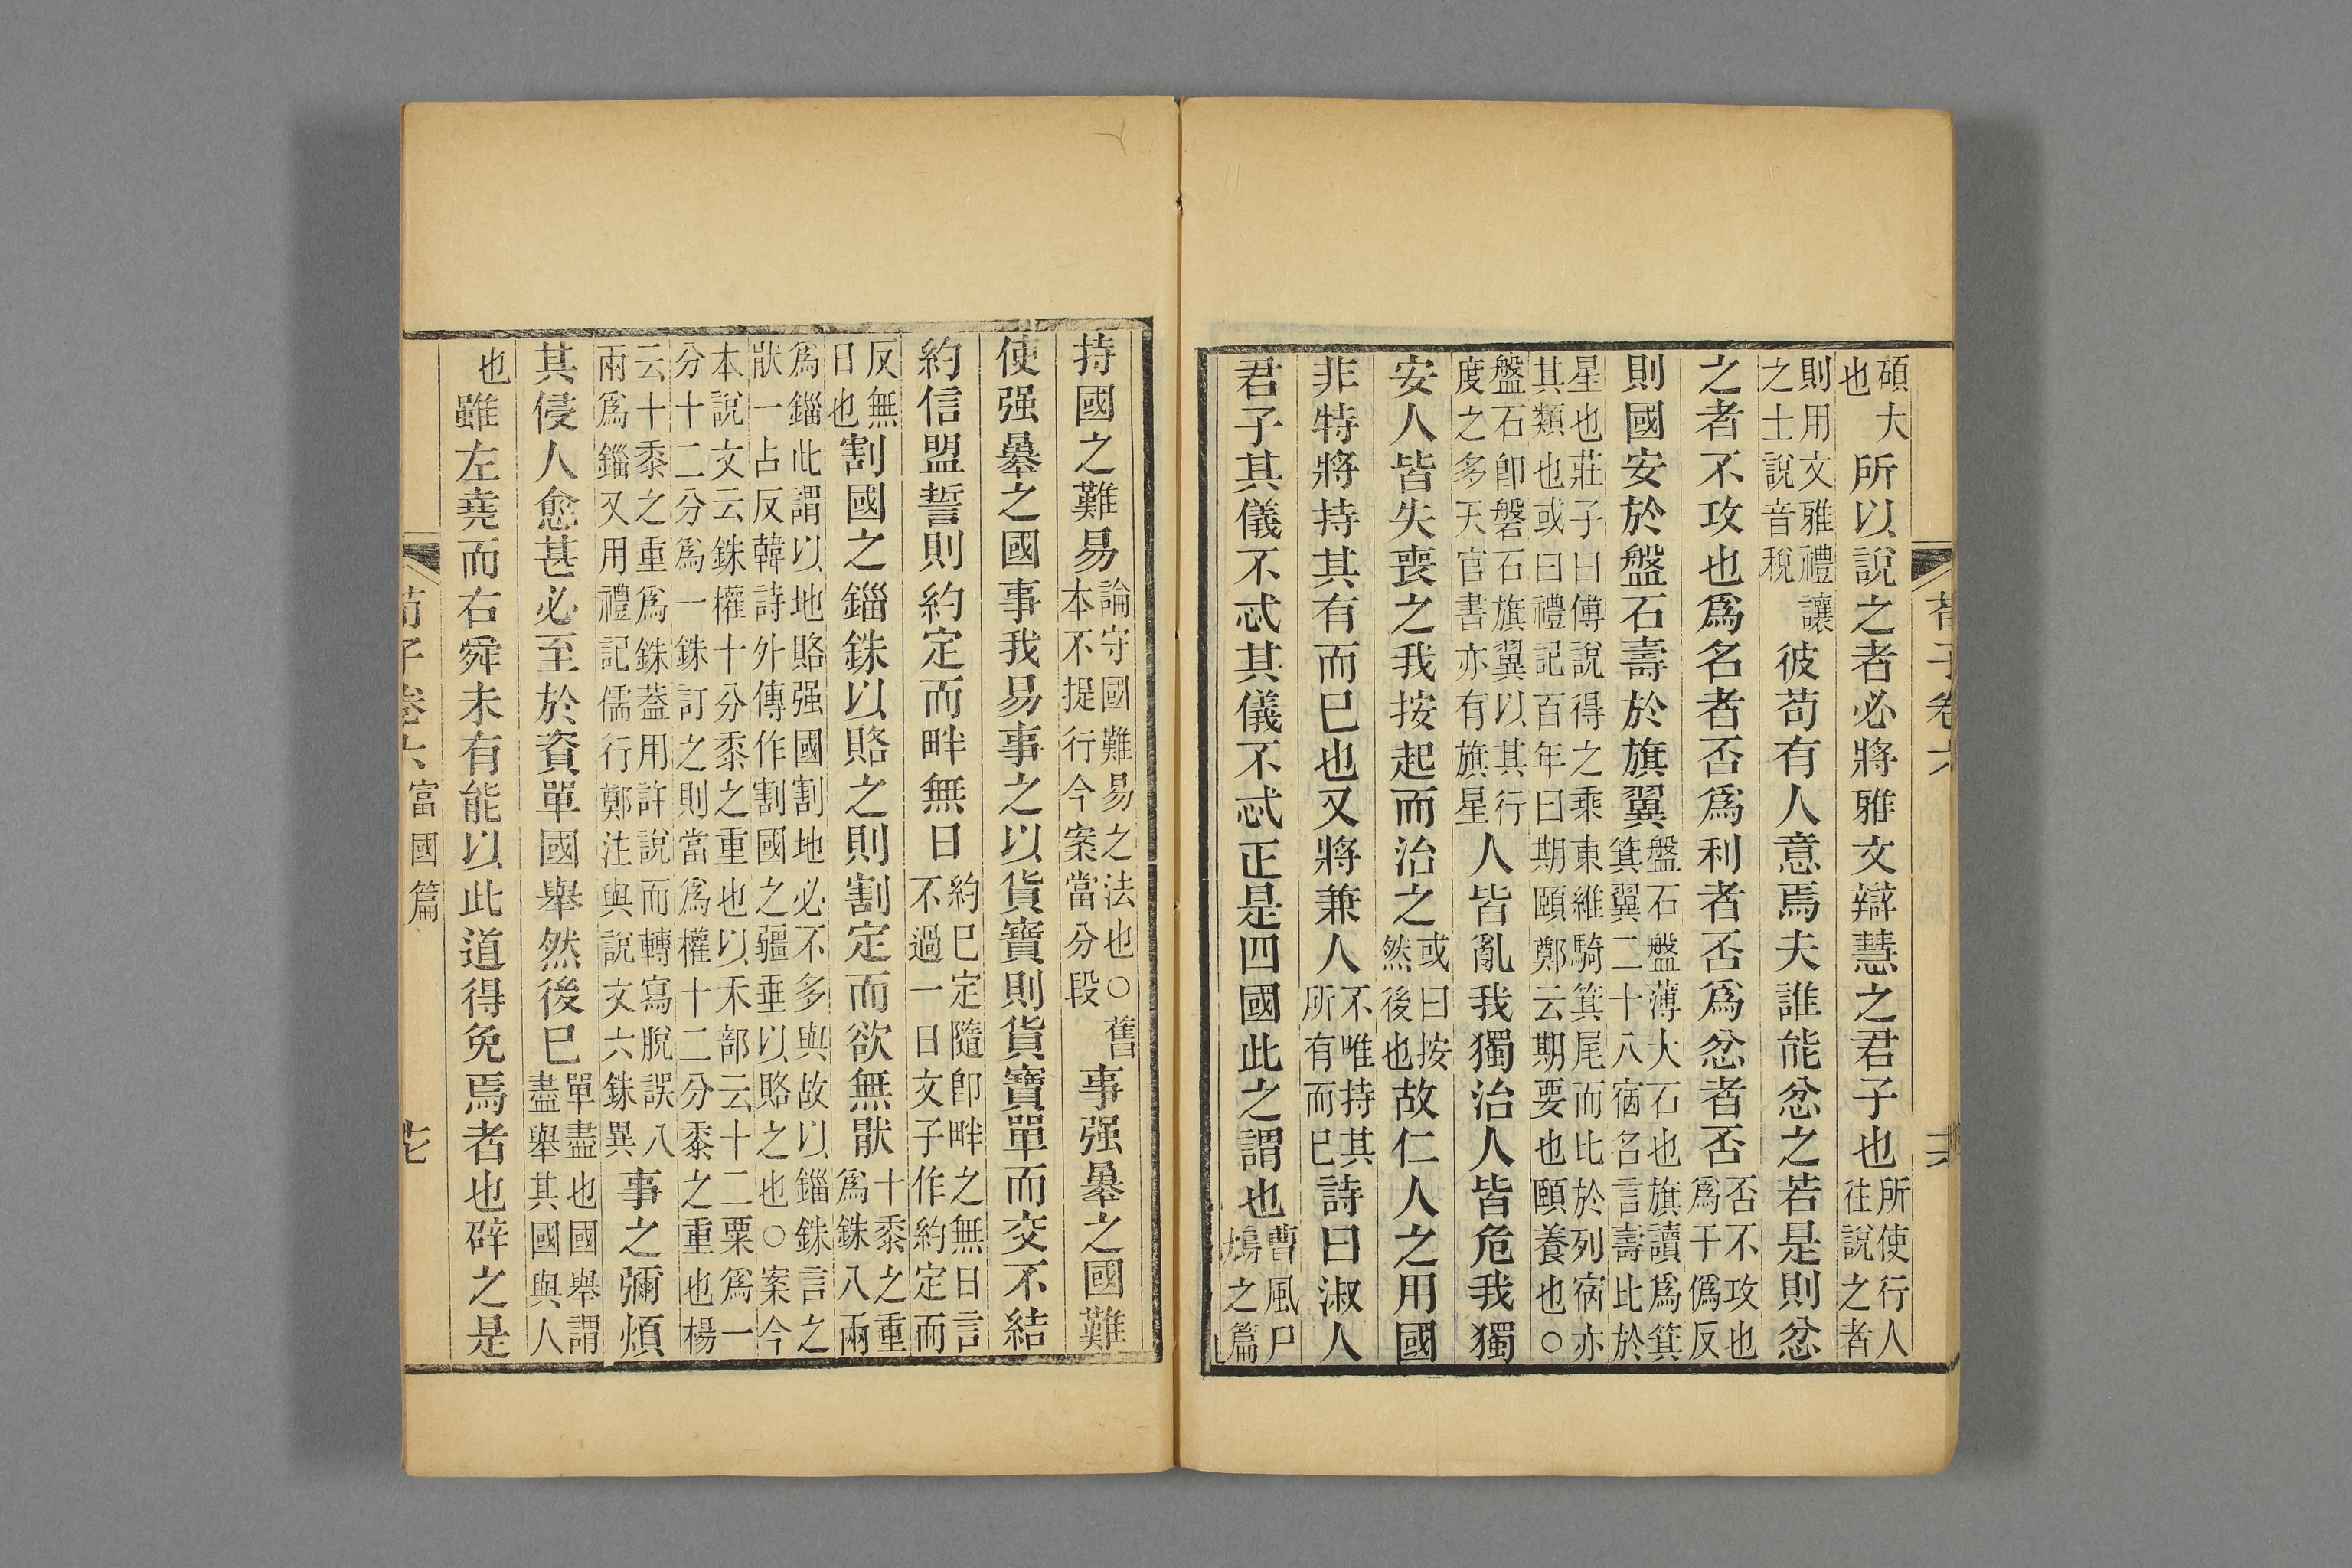 荀子卷六
碩大也所以說之者必將雅文辯慧之君子也所使行人往說之者
則用文雅禮讓之士說音稅彼苟有人意焉夫誰能忿之若是則忿
之者不攻也爲名者否爲利者否爲忿者否否不攻也爲于僞反
則國安於盤石壽於旗翼盤石盤薄大石也旗讀爲箕箕翼二十八宿名言壽比於
星也莊子曰傅說得之乘東維騎箕尾而比於列宿亦其類也或曰禮記百年曰期頤鄭云期要也頤養也○
盤石卽磐石旗翼以其行度之多天官書亦有旗星人皆亂我獨治人皆危我獨
安人皆失喪之我按起而治之或曰按然後也故仁人之用國
非特將持其有而已也又將兼人不唯持其所有而已詩曰淑人
君子其儀不忒其儀不忒正是四國此之謂也曹風尸鳩之篇
持國之難易論守國難易之法也○舊本不提行今案當分段事强暴之國難
使强暴之國事我易事之以貨寶則貨寶單而交不結
約信盟誓則約定而畔無日約已定隨卽畔之無日言不過一日文子作約定而
反無日也割國之錙銖以賂之則割定而欲無猒十黍之重爲銖八兩
爲錙此謂以地賂强國割地必不多與故以錙銖言之猒一占反韓詩外傳作割國之疆垂以賂之也○案今
本說文云銖權十分黍之重也以禾部云十二粟爲一分十二分爲一銖訂之則當爲權十二分黍之重也楊
云十黍之重爲銖蓋用許說而轉寫脫誤八兩爲錙又用禮記儒行鄭注與說文六銖異事之彌煩
其侵人愈甚必至於資單國舉然後已單盡也國舉謂盡舉其國與人
也雖左堯而右舜未有能以此道得免焉者也辟之是
荀子卷六富國篇